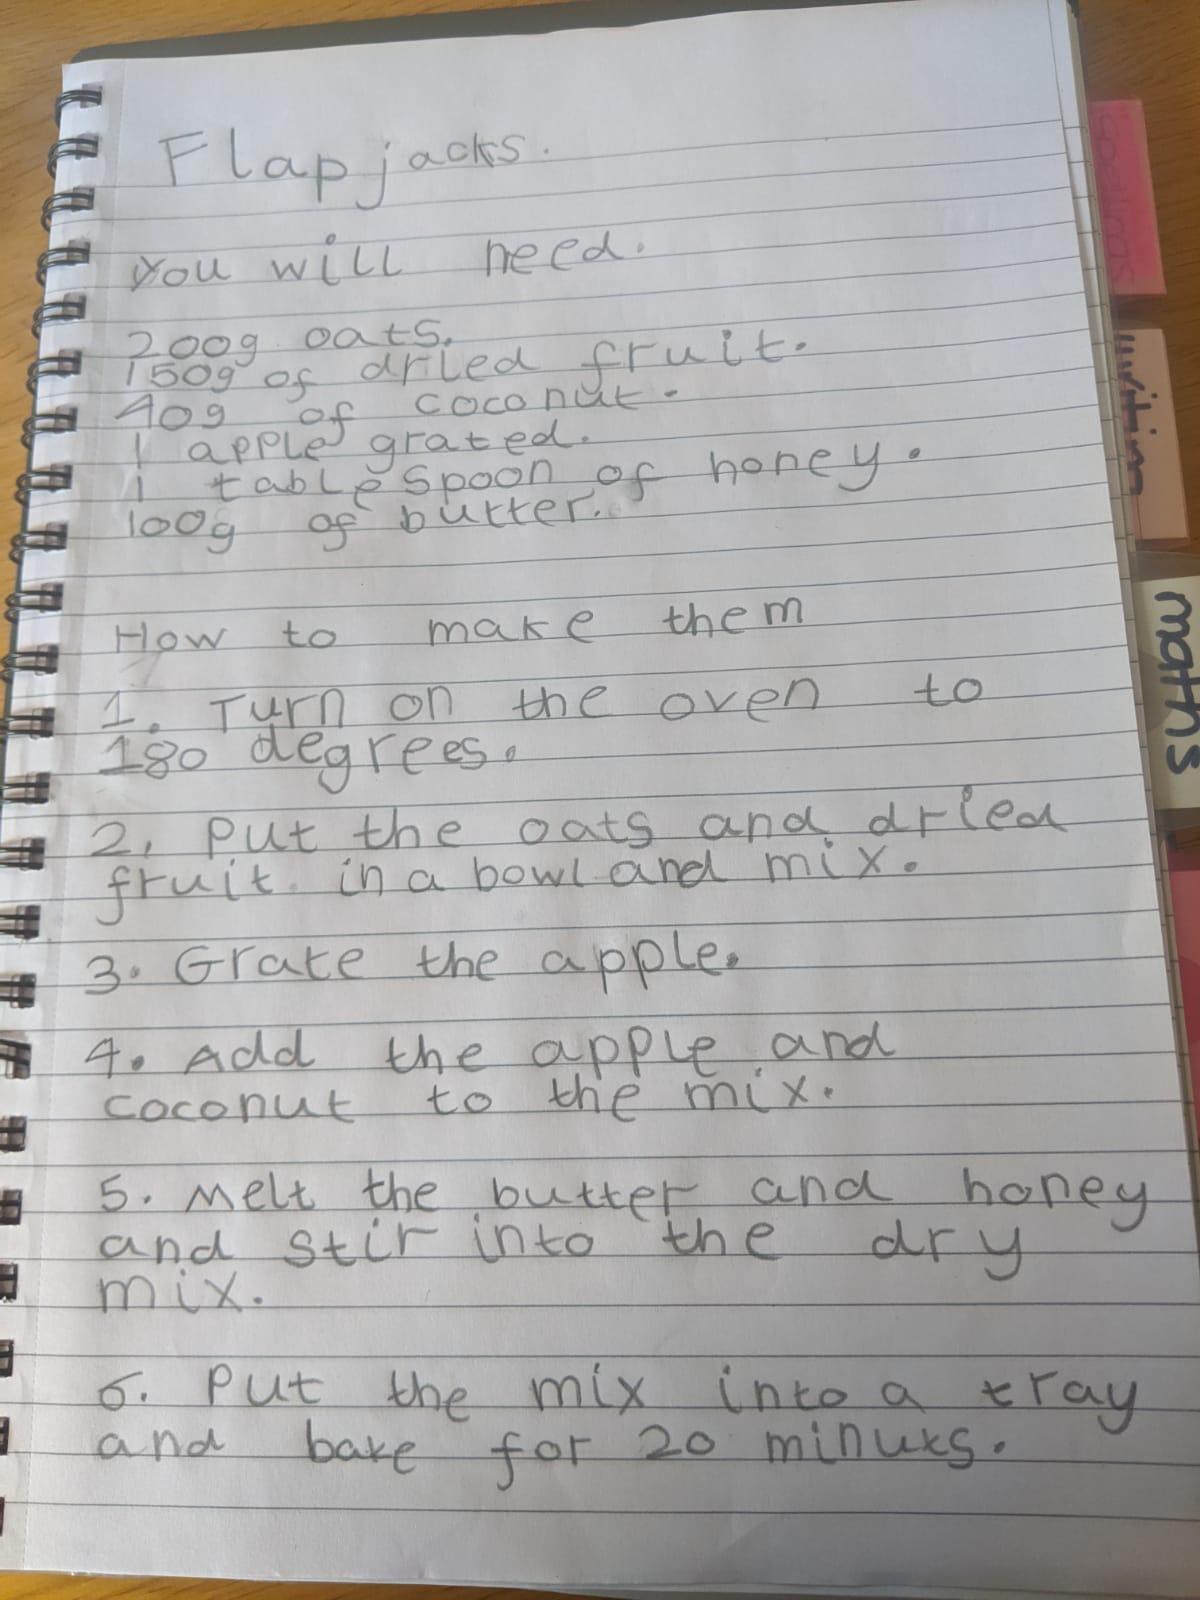 Flapjacks.
you will need.
200g oats.
150g of dried fruit.
40g of coconut.
1 apple grated.
1 table spoon of honey.
100g of butter.
How to make them
1. Turn on the oven to
180 degrees.
2. Put the oats and dried
fruit. in a bowl and mix.
3. Grate the apple.
4. Add the apple and
coconut to the mix.
5. Melt the butter and honey
and stir into the dry
mix.
6. Put the mix into a tray
and bake for 20 minuts.
maths